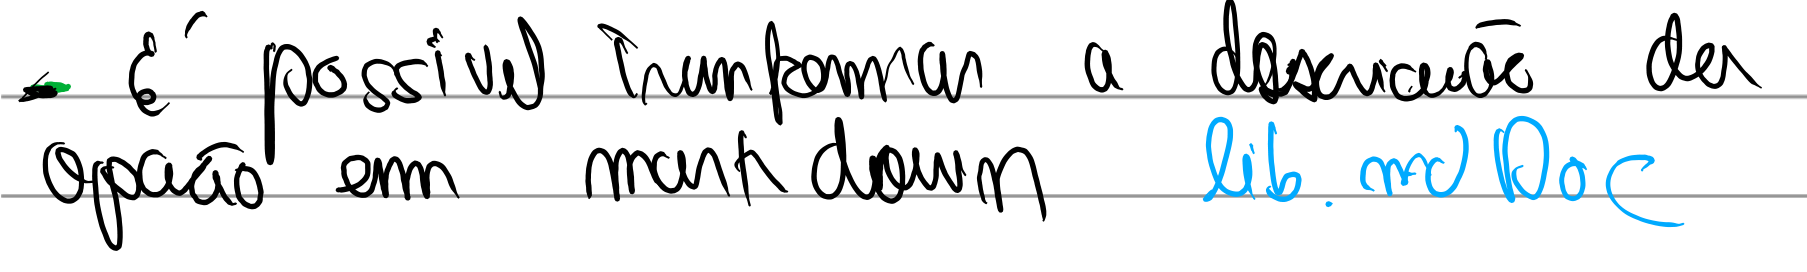 - É possível transformar a descrição da
opção em markdown lib.mdDoc